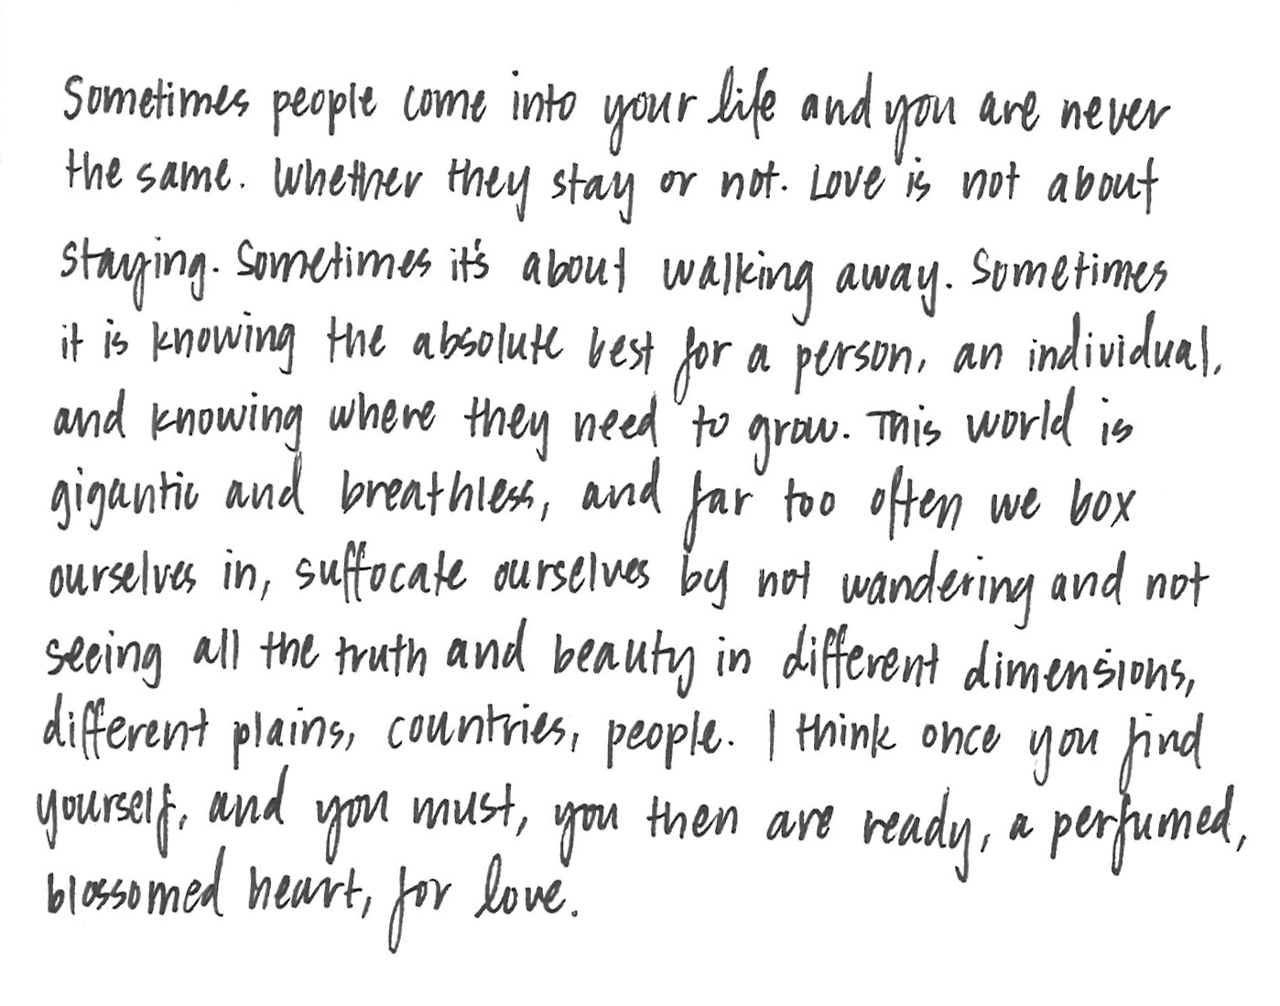 Sometimes people come into your life and you are never
the same. Whether they stay or not. Love is not about
staying. Sometimes it's about walking away. Sometimes
it is knowing the absolute best for a person, an individual,
and knowing where they need to grow. This world is
gigantic and breathless, and far too often we box
ourselves in, suffocate ourselves by not wandering and not
seeing all the truth and beauty in different dimensions,
different plains, countries, people. I think once you find
yourself, and you must, you then are ready, a perfumed,
blossomed heart, for love.